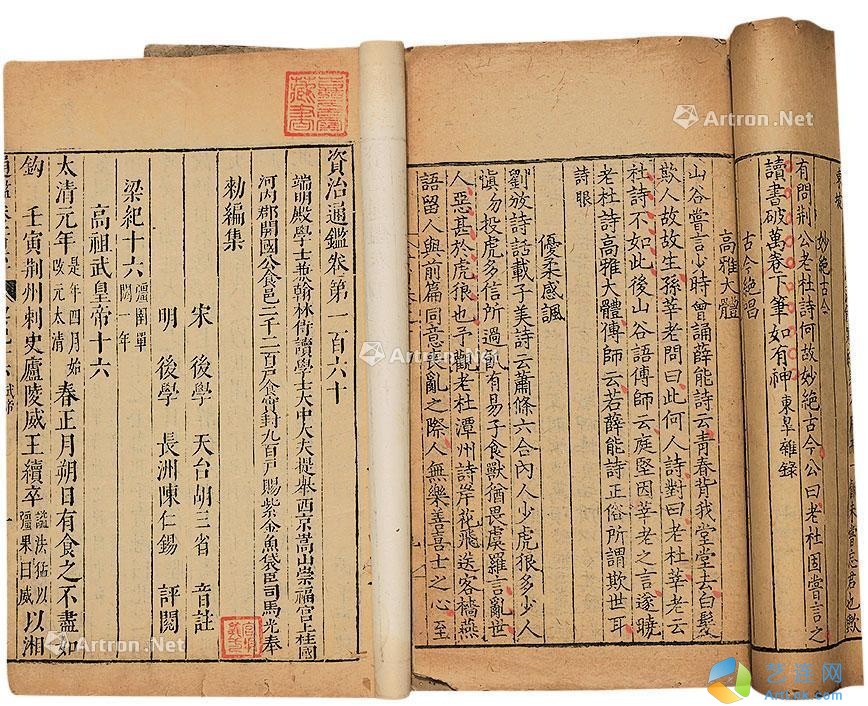 一飯未嘗忘君也歟
東坡
妙絕古今
有問荊公老杜詩何故妙絕古今公曰老杜固嘗言之
讀書破萬卷下筆如有神 東皋雜錄
古今絕唱
高雅大體
山谷嘗言少時曾誦薛能詩云青春背我堂堂去白髮
欺人故故生孫莘老問曰此何人詩對曰老杜莘老云
杜詩不如此後山谷語傳師云庭堅因莘老之言遂曉
老杜詩高雅大體傳師云若薛能詩正俗所謂欺世耳
詩眼
優柔感諷
劉攽詩話載子美詩云蕭條六合內人少虎狼多少人
慎勿投虎多信所過飢有易子食獸猶畏虞羅言亂世
人惡甚於虎狼也予觀老杜潭州詩岸花飛送客檣燕
語留人與前篇同意喪亂之際人無樂善喜士之心至
藏書
資治通鑑卷第一百六十
端明殿學士兼翰林侍讀學士大中大夫提舉西京嵩山崇福宮上柱國
河內郡開國公食邑二千二百戶食實封九百戶賜紫金魚袋臣司馬光奉
勑編集
宋 後學 天台胡三省 音註
明 後學 長洲陳仁錫 評閱
梁紀十六 彊圉單閼一年
高祖武皇帝十六
太清元年 是年四月始改元太清 春正月朔日有食之不盡如
鈎 壬寅荊州刺史廬陵威王續卒 諡法猛以彊果曰威 以湘
Artron.Net
Artron.Net
Artron.Net
Artron.Net
Artron.Net
艺连网
Artlok.com